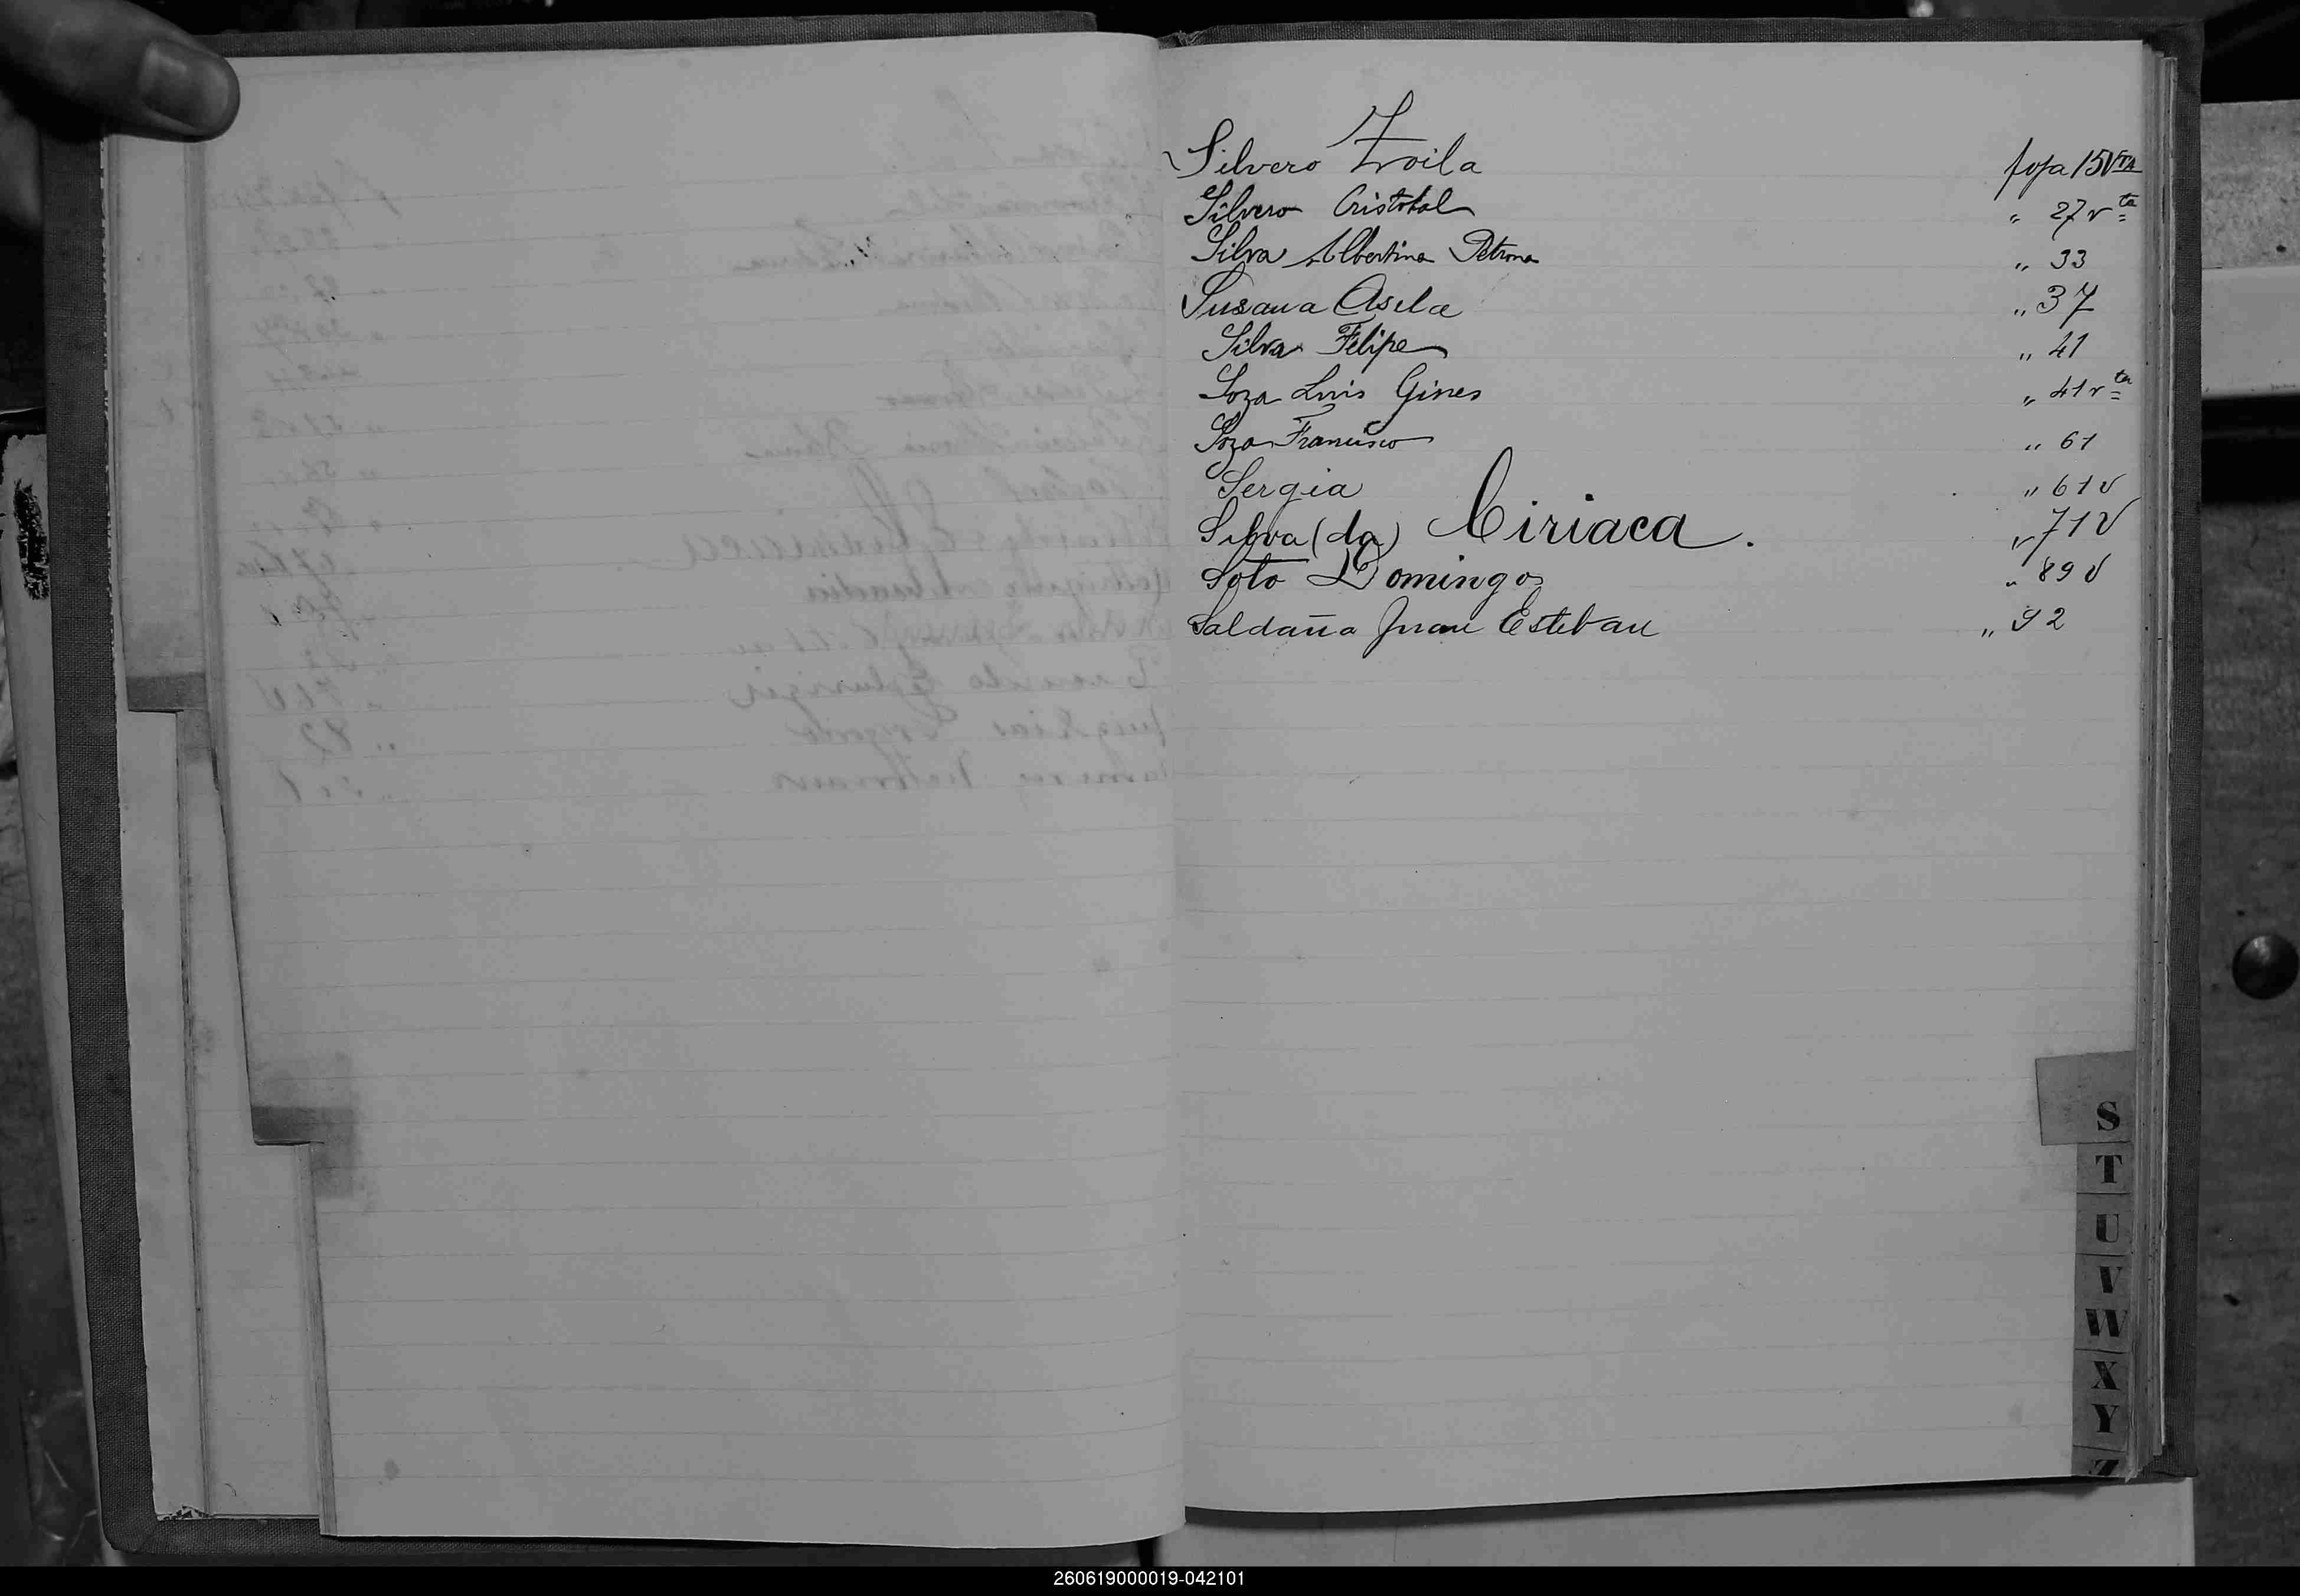 Silvero Zroila foja 15Vta
Silvero Cristobal " 27 vta
Silva Albertina Petrona " 33
Susana Asela " 37
Silva Felipe " 41
Soza Luis Gines " 41 vta
Soza Francisco " 61
Sergia " 61 V
Silva (da) Ciriaca. " 71 V
Soto Domingo " 89 V
Saldaña Juan Esteban " 92
S
T
U
V
W
X
Y
Z
260619000019-042101